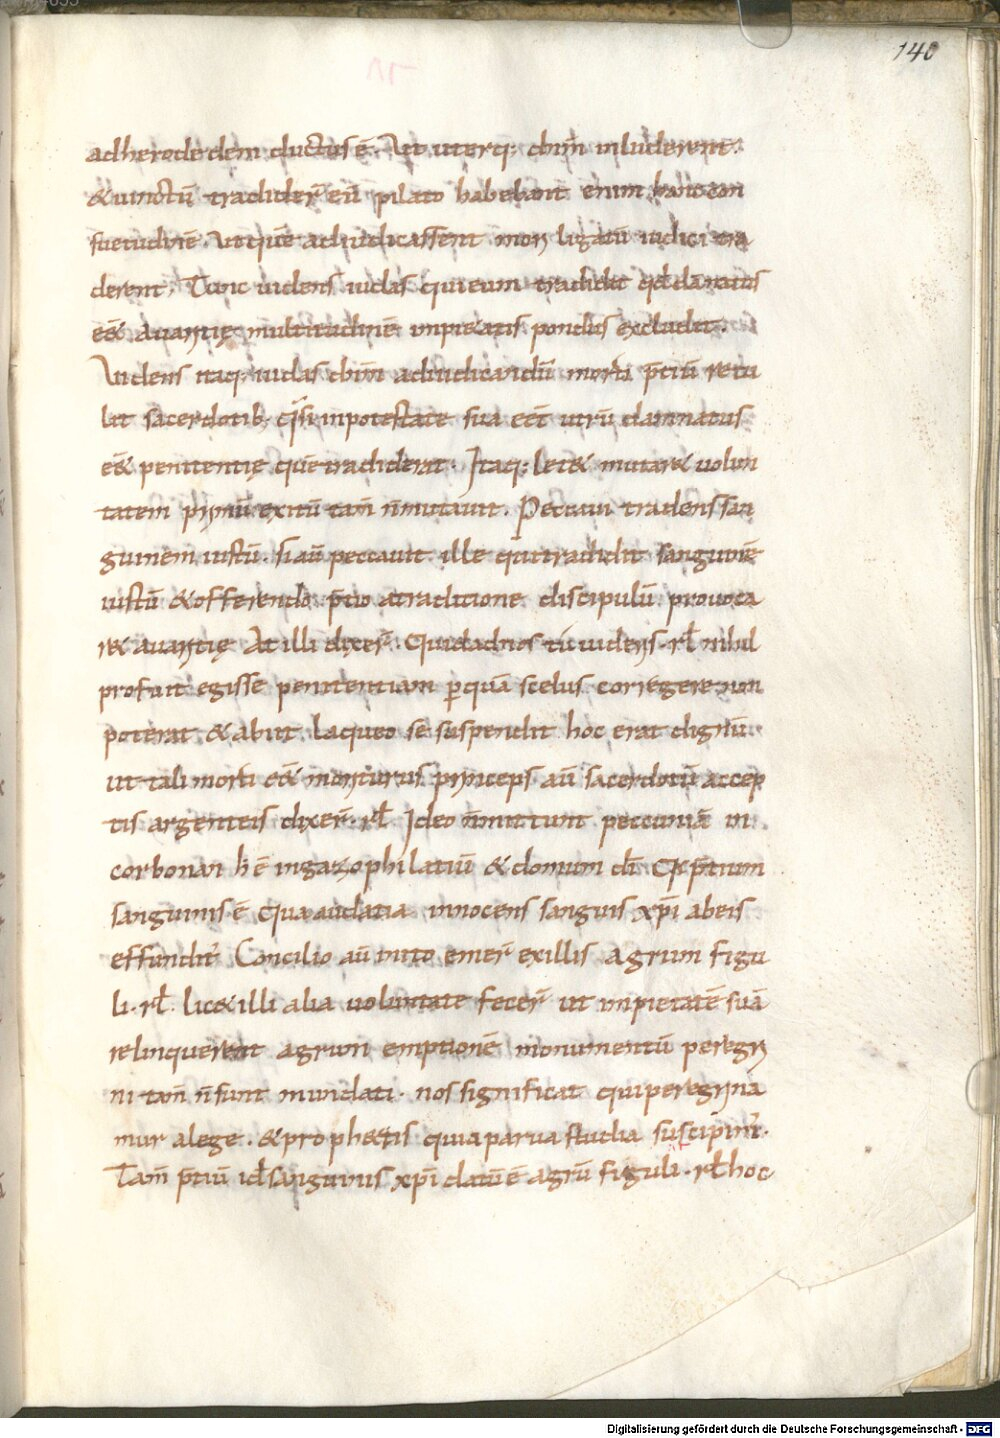 140
adherodedem ductus ē. Ut uterq; dn̄m inluderent.
& uinctū tradider̄ eū pilato habebant enim hanc con
suetudinē. Ut quē adiudicassent mori ligatū iudici tra
derent; Tunc uidens iudas qui eum tradidit qđ dānatus
eēt auaritię multitudinē impietatis pondus excludit.
Uidens itaq; iudas dn̄m adiudicandū morti p̄tiū retu
lit sacerdotib; q̄si inpotestate sua eēt utrū damnatus
e& penitentię quē tradiderat. Itaq; lic& mutar& uolun
tatem primū exitū tam̄ n̄ mutauit. Peccaui tradens san
guinem iustū. si aū peccauit ille qui tradidit sanguinē
iustū & offerendo p̄tio atraditione discipulū prouoca
r& auaritię At illi dixer̄. Quid ad nos tu uideris. rł nihil
profuit egisse penitentiam p̱ quā scelus corregere non
poterat & abiit laqueo se suspendit hoc erat dignū
ut tali morti e& moriturus princeps aū sacerdotū accep
tis argenteis dixer̄. rł Ideo n̄ mittunt peccuniā in
corbonan h̄ ē in gazophilatiū & domum dī Q̄ p̄tium
sanguinis ē qua audatia innocens sanguis xp̄i abeis
effundit̄ Concilio aū inito emer̄ ex illis agrum figu
li. rł. lic& illi alia uoluntate fecer̄ ut impietatē suā
relinquerent agrum emptionē monumentū peregri
ni tam̄ n̄ sunt mundati. nos significat qui peregrina
mur alege. & proph&is quia parua studia suscipim̄.
Tam̄ p̄tiū id sanguinis xp̄i datū ē agrū figuli. rł hoc
Digitalisierung gefördert durch die Deutsche Forschungsgemeinschaft - DFG